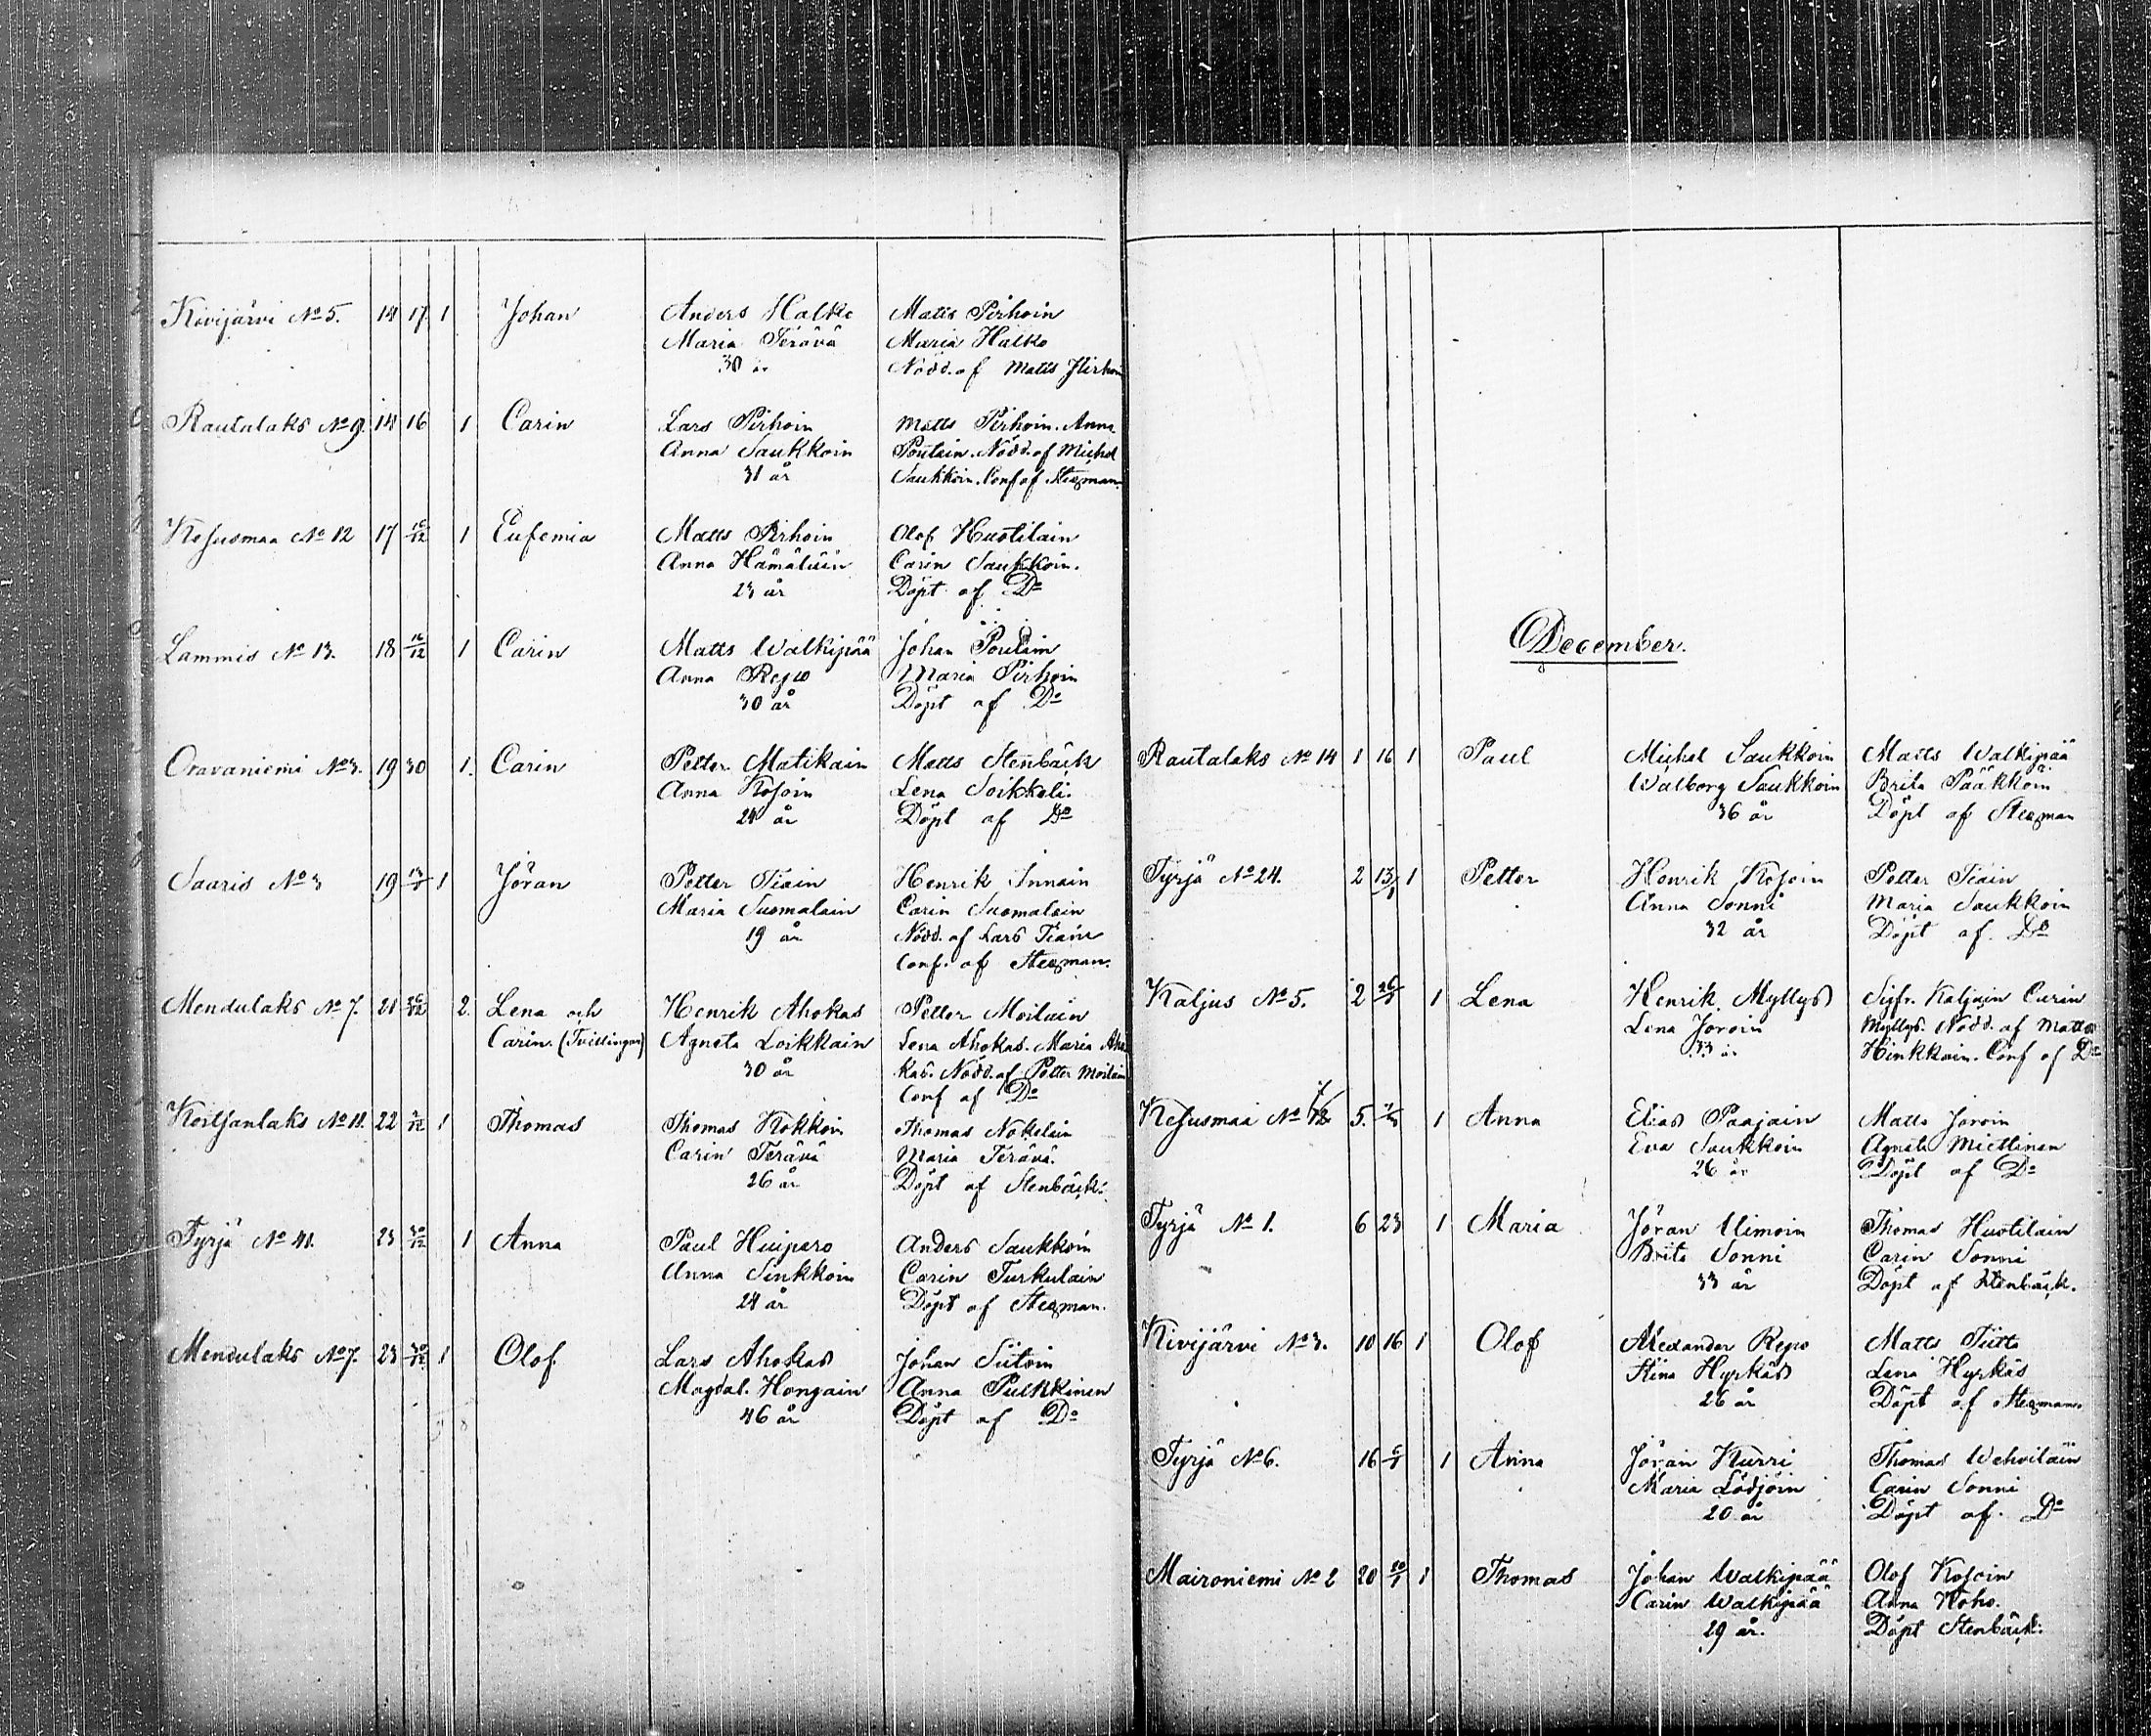 Kivijärvi No 5. 14 17 1 Johan Anders Halko Matts Pirhoin
Maria Terävä Maria Halko
30 år Nöd d. af Matts Pirhoin
Rautalaks No 9. 14 16 1 Carin Lars Pirhoin Matts Pirhoin. Anna
Anna Saukkoin Poutain. Nöd d. af Michel
31 år Saukkoin. Conf af Stegman.
Kesusmaa No 12 17 16/12 1 Eufemia Matts Pirhoin Olof Huotilain
Anna Hämäläin Carin Saukkoin.
23 år Döpt af Do
Lammis No 13. 18 16/12 1 Carin Matts Walkipää Johan Poutain
Anna Repo Maria Pirhoin
30 år Döpt af Do
Oravaniemi No 3. 19 30 1. Carin Petter Matikain Matts Stenbäck
Anna Kosoin Lena Soikkeli.
24 år Döpt af Do
Saaris No 3 19 13/1 1 Jöran Petter Tiain Henrik Innain
Maria Suomalain Carin Suomalain
19 år Nöd d. af Lars Tiain
Conf. af Stegman.
Mendulaks No 7. 21 26/12 2. Lena och Henrik Ahokas Petter Moilain
Carin. (Tvillingar) Agneta Loikkain Lena Ahokas. Maria Aho
30 år kas. Nöd d. af Petter Moilain
Conf af Do
Kostjanlaks No 11. 22 /12 1 Thomas Thomas Kokkoin Thomas Nokelain
Carin Terävä Maria Terävä.
26 år Döpt af Stenbäck.
Tyrjä No 41. 23 30/12 1 Anna Paul Huipero Anders Saukkoin
Anna Sinkkoin Carin Turkulain
24 år Döpt af Stegman.
Mendulaks No 7. 23 30/12 1 Olof Lars Ahokas Johan Siitoin
Magdal. Hongain Anna Pulkkinen
46 år Döpt af Do
December.
Rautalaks No 14 1 16 1 Paul Michel Saukkoin Matts Walkipää
Walborg Saukkoin Brita Pääkköin
36 år Döpt af Stegman
Tyrjä No 24. 2 13/1 1 Petter Henrik Kosoin Petter Tiain
Anna Sonni Maria Saukkoin
32 år Döpt af Do
Kaljus No 5. 2 26/1 Lena Henrik Myllys Sigfr. Kaljain Carin
Lena Joroin Myllys. Nöd d. af Matts
33 år Hinkkain. Conf af Do
Kesusmaa No 12 5. 1 Anna Elias Paajain Matts Joroin
Eva Saukkoin Agneta Miettinen
26 år Döpt af Do
Tyrjä No 1. 6 23 1 Maria Jöran Uimoin Thomas Huotilain
Brita Sonni Carin Sonni
33 år Döpt af Stenbäck.
Kivijärvi No 3. 10 16 1 Olof Alexander Repo Matts Tiitto
Stina Hyrkäs Lena Hyrkäs
26 år Döpt af Stegman.
Tyrjä No 6. 16 6/1 1 Anna Jöran Kurri Thomas Wehviläin
Maria Lödjöin Carin Sonni
20 år Döpt af. Do
Maironiemi No 2 20 20/1 1 Thomas Johan Walkipää Olof Kosoin
Carin Walkipää Anna Koho.
29 år. Döpt Stenbäck.